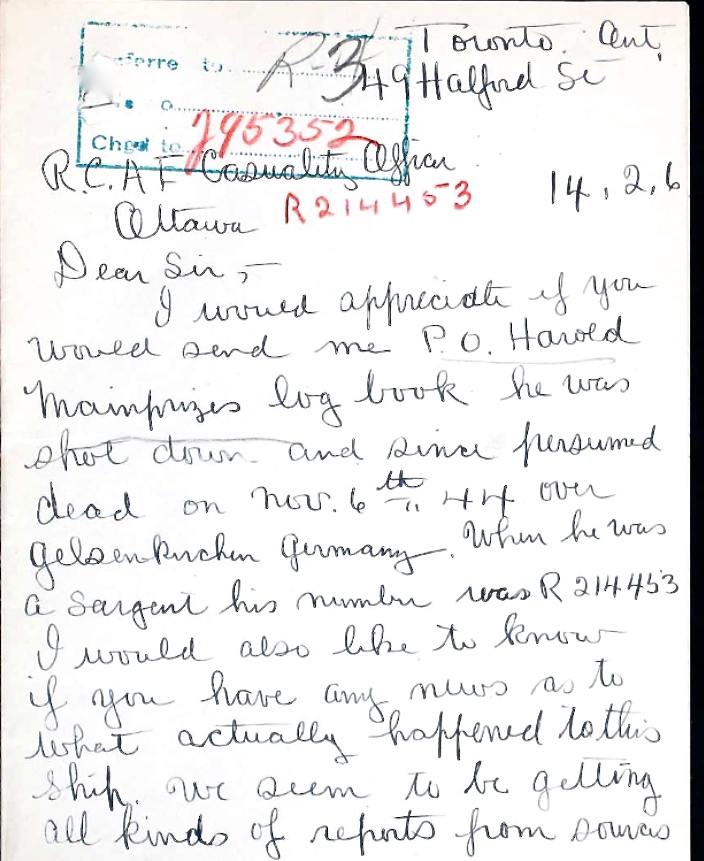 Toronto. Ont.
49 Halford
R3
J95352
Chgd to
R.C.A.F Casuality Officer
14, 2, 6
Ottawa R214453
Dear Sir,-
I would appreciate if you
would send me P.O. Harold
Mainprizes log book he was
shot down and since persumed
dead on Nov. 6th 44 over
Gelsenkirchen Germany. When he was
a Sargent his number was R 214453
I would also like to know
if you have any news as to
what actually happened to this
ship. We seem to be getting
all kinds of reports from sources